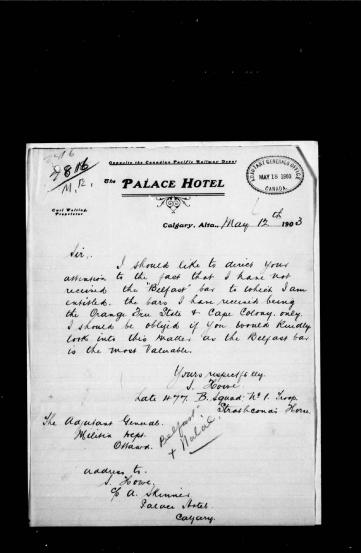 9816
M.R.
Opposite the Canadian Pacific Railway Depot
The PALACE HOTEL
ADJUTANT GENERAL'S OFFICE
MAY 18 1903
CANADA.
Proprietor
Calgary, Alta., May 12th 1903
Sir,
I should like to direct your
attension to the fact that I have not
received the "Belfast" bar to which I am
entitled. the bars I have received being
the Orange Free State & Cape Colony. only.
I should be obliged if you would kindly
look into this matter as the Belfast bar
is the most valuable.
Yours respectfully.
S. Howe.
Late 477. B. Squad. No 1. Troop.
Strathcona's Horse.
The Adjutant General.
Militia Dept.
Ottawa.
"Belfast"
+ Natal
address to.
S. Howe.
c/o A. Skinner
Palace Hotel
Calgary.